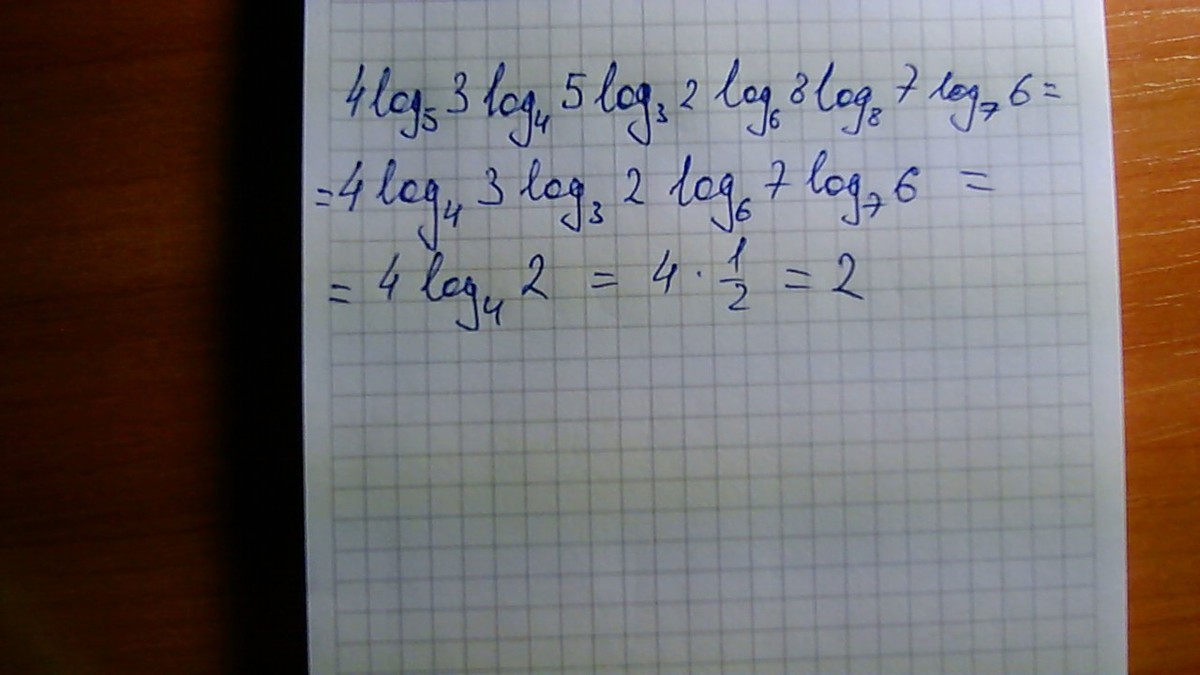 4 log₅ 3 log₄ 5 log₃ 2 log₆ 8 log₈ 7 log₇ 6 =
= 4 log₄ 3 log₃ 2 log₆ 7 log₇ 6 =
= 4 log₄ 2 = 4 · 1/2 = 2